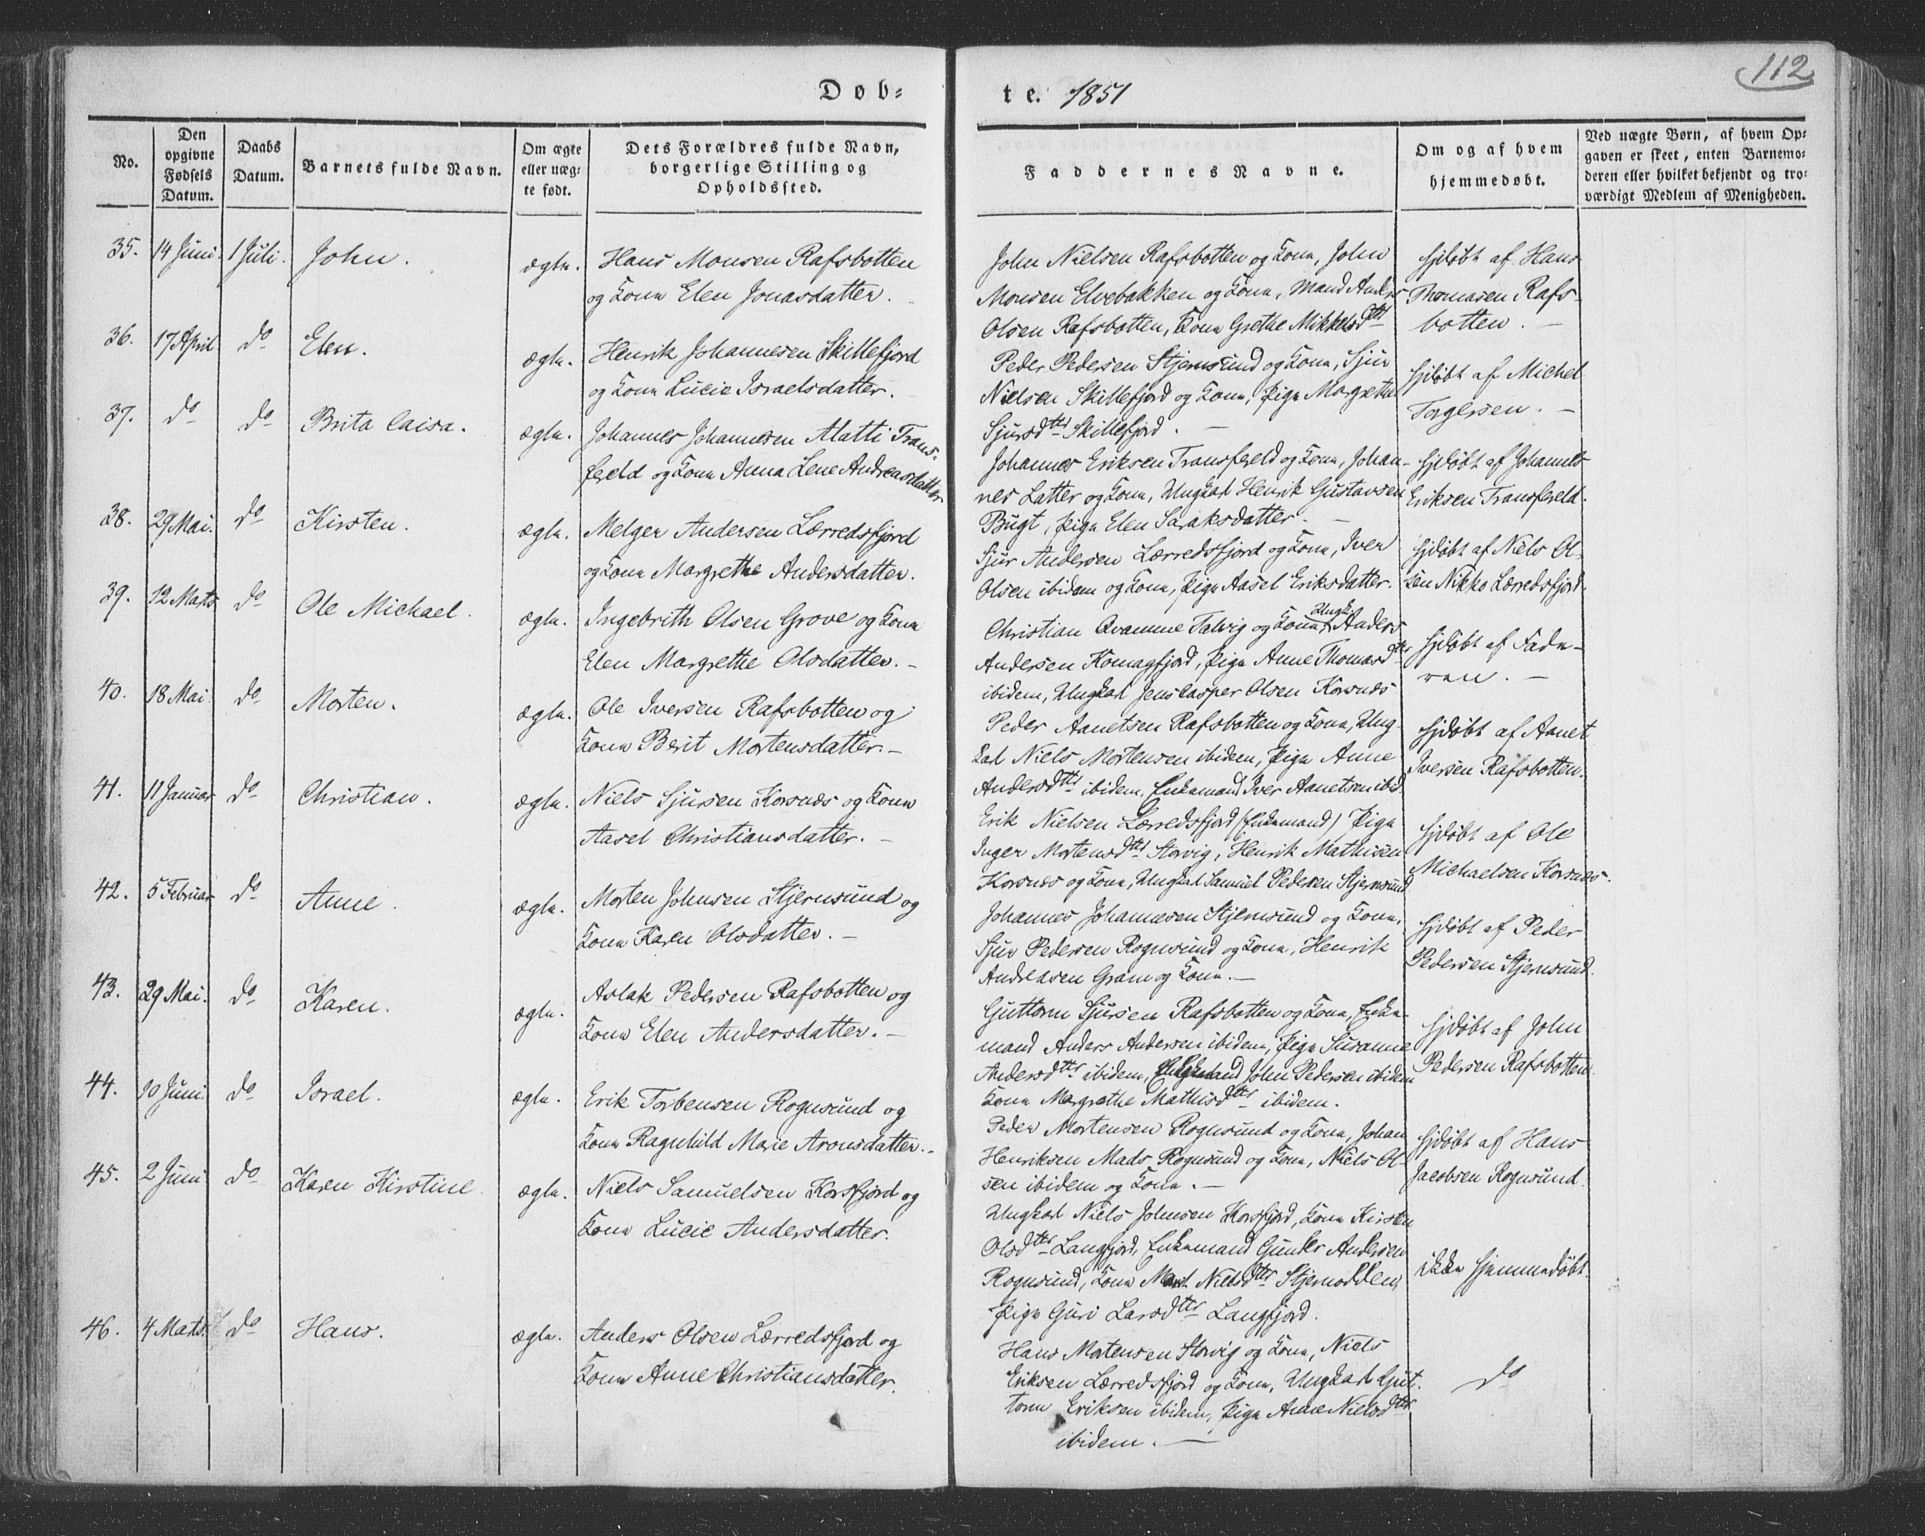 112
Døb-
te. 1851
No.
Den opgivne Fødsels Datum.
Daabs Datum.
Barnets fulde Navn.
Om ægte eller uægte født.
Dets Forældres fulde Navn, borgerlige Stilling og Opholdssted.
Faddernes Navne.
Om og af hvem hjemmedøbt.
Ved uægte Børn, af hvem Op-
gaven er skeet, enten Barnemo-
deren eller hvilket bekjendt og tro-
værdigt Medlem af Menigheden.
35. 14 Juni. 1 Juli. John. ægte. Hans Monsen Rafsbotten
og Kone Elen Jonasdatter.
John Nielsen Rafsbotten og Kone, John
Monsen Elvebakken og Kone, Mand Anders
Olsen Rafsbotten, Kone Grethe Mikkelsdttr
hjdøbt af Hans
Thomasen Rafs-
botten. —
36. 17 April do Elen. ægte. Henrik Johannesen Skillefjord
og Kone Lucie Israelsdatter.
Peder Pedersen Stjernsund og Kone, Sjur
Nielsen Skillefjord og Kone, Pige Margrethe
Sjursdttr Skillefjord. —
hjdøbt af Michel
Torgersen. —
37. do do Brita Caisa. ægte. Johannes Johannesen Matti Trans-
fjeld og Kone Anna Lene Andreasdatter.
Johannes Eriksen Transfjeld og Kone, Johan-
nes Latter og Kone, Ungkarl Henrik Gustavsen
Bugt, Pige Elen Saraksdatter. —
hjdøbt af Johannes
Eriksen Transfjeld.
38. 29 Mai. do Kirsten. ægte. Melger Andersen Lærredsfjord
og Kone Margrethe Andersdatter.
Sjur Andersen Lærredsfjord og Kone, Iver
Olsen ibidem og Kone, Pige Aasel Eriksdatter.
hjdøbt af Niels Ol-
sen Nikko Lærredsfjord.
39. 12 Marts do Ole Michael. ægte. Ingebrith Olsen Grove og Kone
Elen Margrethe Olsdatter. —
Christian Qvamme Talvig og Kone, Ungk. Anders
Andersen Komagfjord, Pige Anne Thomasdttr
ibidem, Ungkarl Jens Casper Olsen Korsnæs
hjdøbt af Fade-
ren. —
40. 18 Mai. do Morten. ægte. Ole Iversen Rafsbotten og
Kone Berit Mortensdatter. —
Peder Aanetsen Rafsbotten og Kone, Ung-
karl Niels Mortensen ibidem, Pige Anne
Andersdttr ibidem, Enkemand Iver Aanetsen ibid.
hjdøbt af Aanet
Iversen Rafsbotten.
41. 11 Januar do Christian. ægte. Niels Sjursen Korsnæs og Kone
Aasel Christiansdatter. —
Erik Nielsen Lærredsfjord (Enkemand) Pige
Inger Mortensdttr Storvig, Henrik Mathisen
Korsnæs og Kone, Ungkarl Samuel Pedersen Stjernsund
hjdøbt af Ole
Michaelsen Korsnæs.
42. 5 Februar do Anne. ægte. Morten Johnsen Stjernsund og
Kone Karen Olsdatter. —
Johannes Johannesen Stjernsund og Kone,
Sjur Pedersen Rognsund og Kone, Henrik
Andreasen Gram og Kone. —
hjdøbt af Peder
Pedersen Stjernsund.
43. 29 Mai. do Karen. ægte. Aslak Pedersen Rafsbotten og
Kone Elen Andersdatter. —
Guttorm Sjursen Rafsbotten og Kone, Enke-
mand Anders Andersen ibidem, Pige Susanne
Andersdttr ibidem, John Pedersen ibidem
Kone Margrethe Mathisdttr ibidem.
hjdøbt af John
Pedersen Rafsbotten.
44. 10 Juni. do Israel. ægte. Erik Torbensen Rognsund og
Kone Ragnhild Marie Aronsdatter. —
Peder Mortensen Rognsund og Kone, Johan
Henriksen Mads Rognsund og Kone, Niels Ol-
sen ibidem og Kone. —
hjdøbt af Hans
Jacobsen Rognsund.
45. 2 Juni do Karen Kirstine. ægte. Niels Samuelsen Korsfjord og
Kone Lucie Andersdatter.
Ungkarl Niels Johnsen Korsfjord, Kone Kirsten
Olsdttr Langfjord, Enkemand Gunder Andersen
Rognsund, Kone Marit Nielsdttr Stjernodden,
Pige Guri Larsdttr Langfjord.
ikke hjemmedøbt.
46. 4 Marts. do Hans. ægte. Anders Olsen Lærredsfjord og
Kone Anne Christiansdatter.
Hans Mortensen Storvig og Kone, Niels
Eriksen Lærredsfjord og Kone, Ungkarl Gut-
torm Eriksen ibidem, Pige Anne Nielsdttr
ibidem. —
do